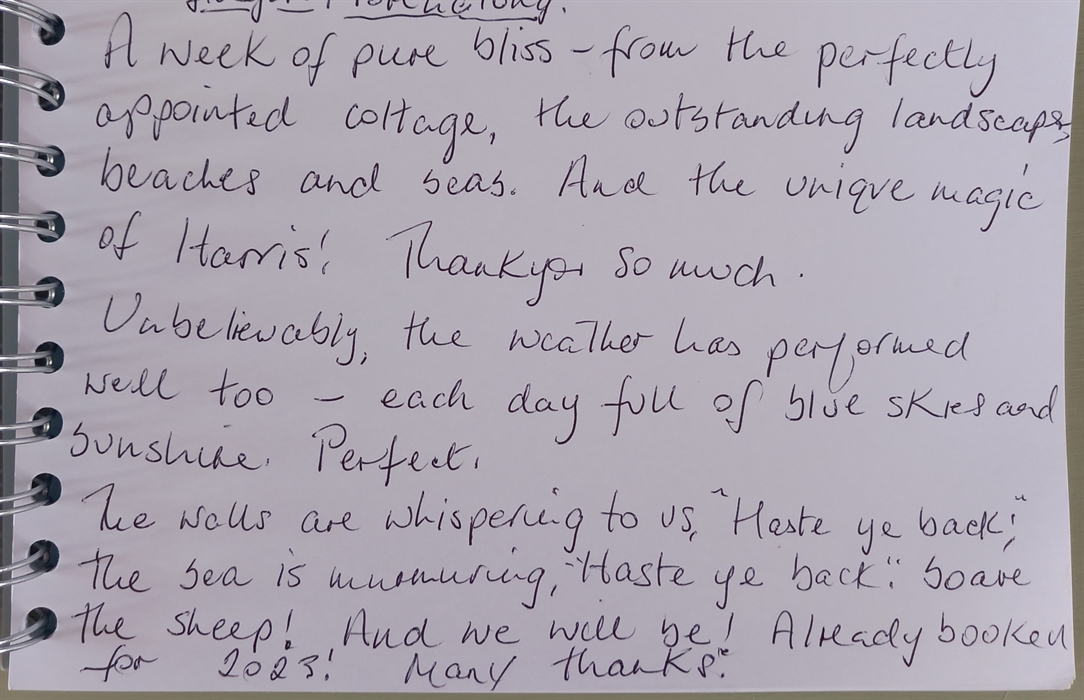 A week of pure bliss – from the perfectly
appointed cottage, the outstanding landscape,
beaches and seas. And the unique magic
of Harris! Thankyou so much.
Unbelievably, the weather has performed
well too – each day full of blue skies and
sunshine. Perfect.
The walls are whispering to us, "Haste ye back";
the sea is murmuring, "Haste ye back". So are
the sheep! And we will be! Already booked
for 2023! Many thanks.